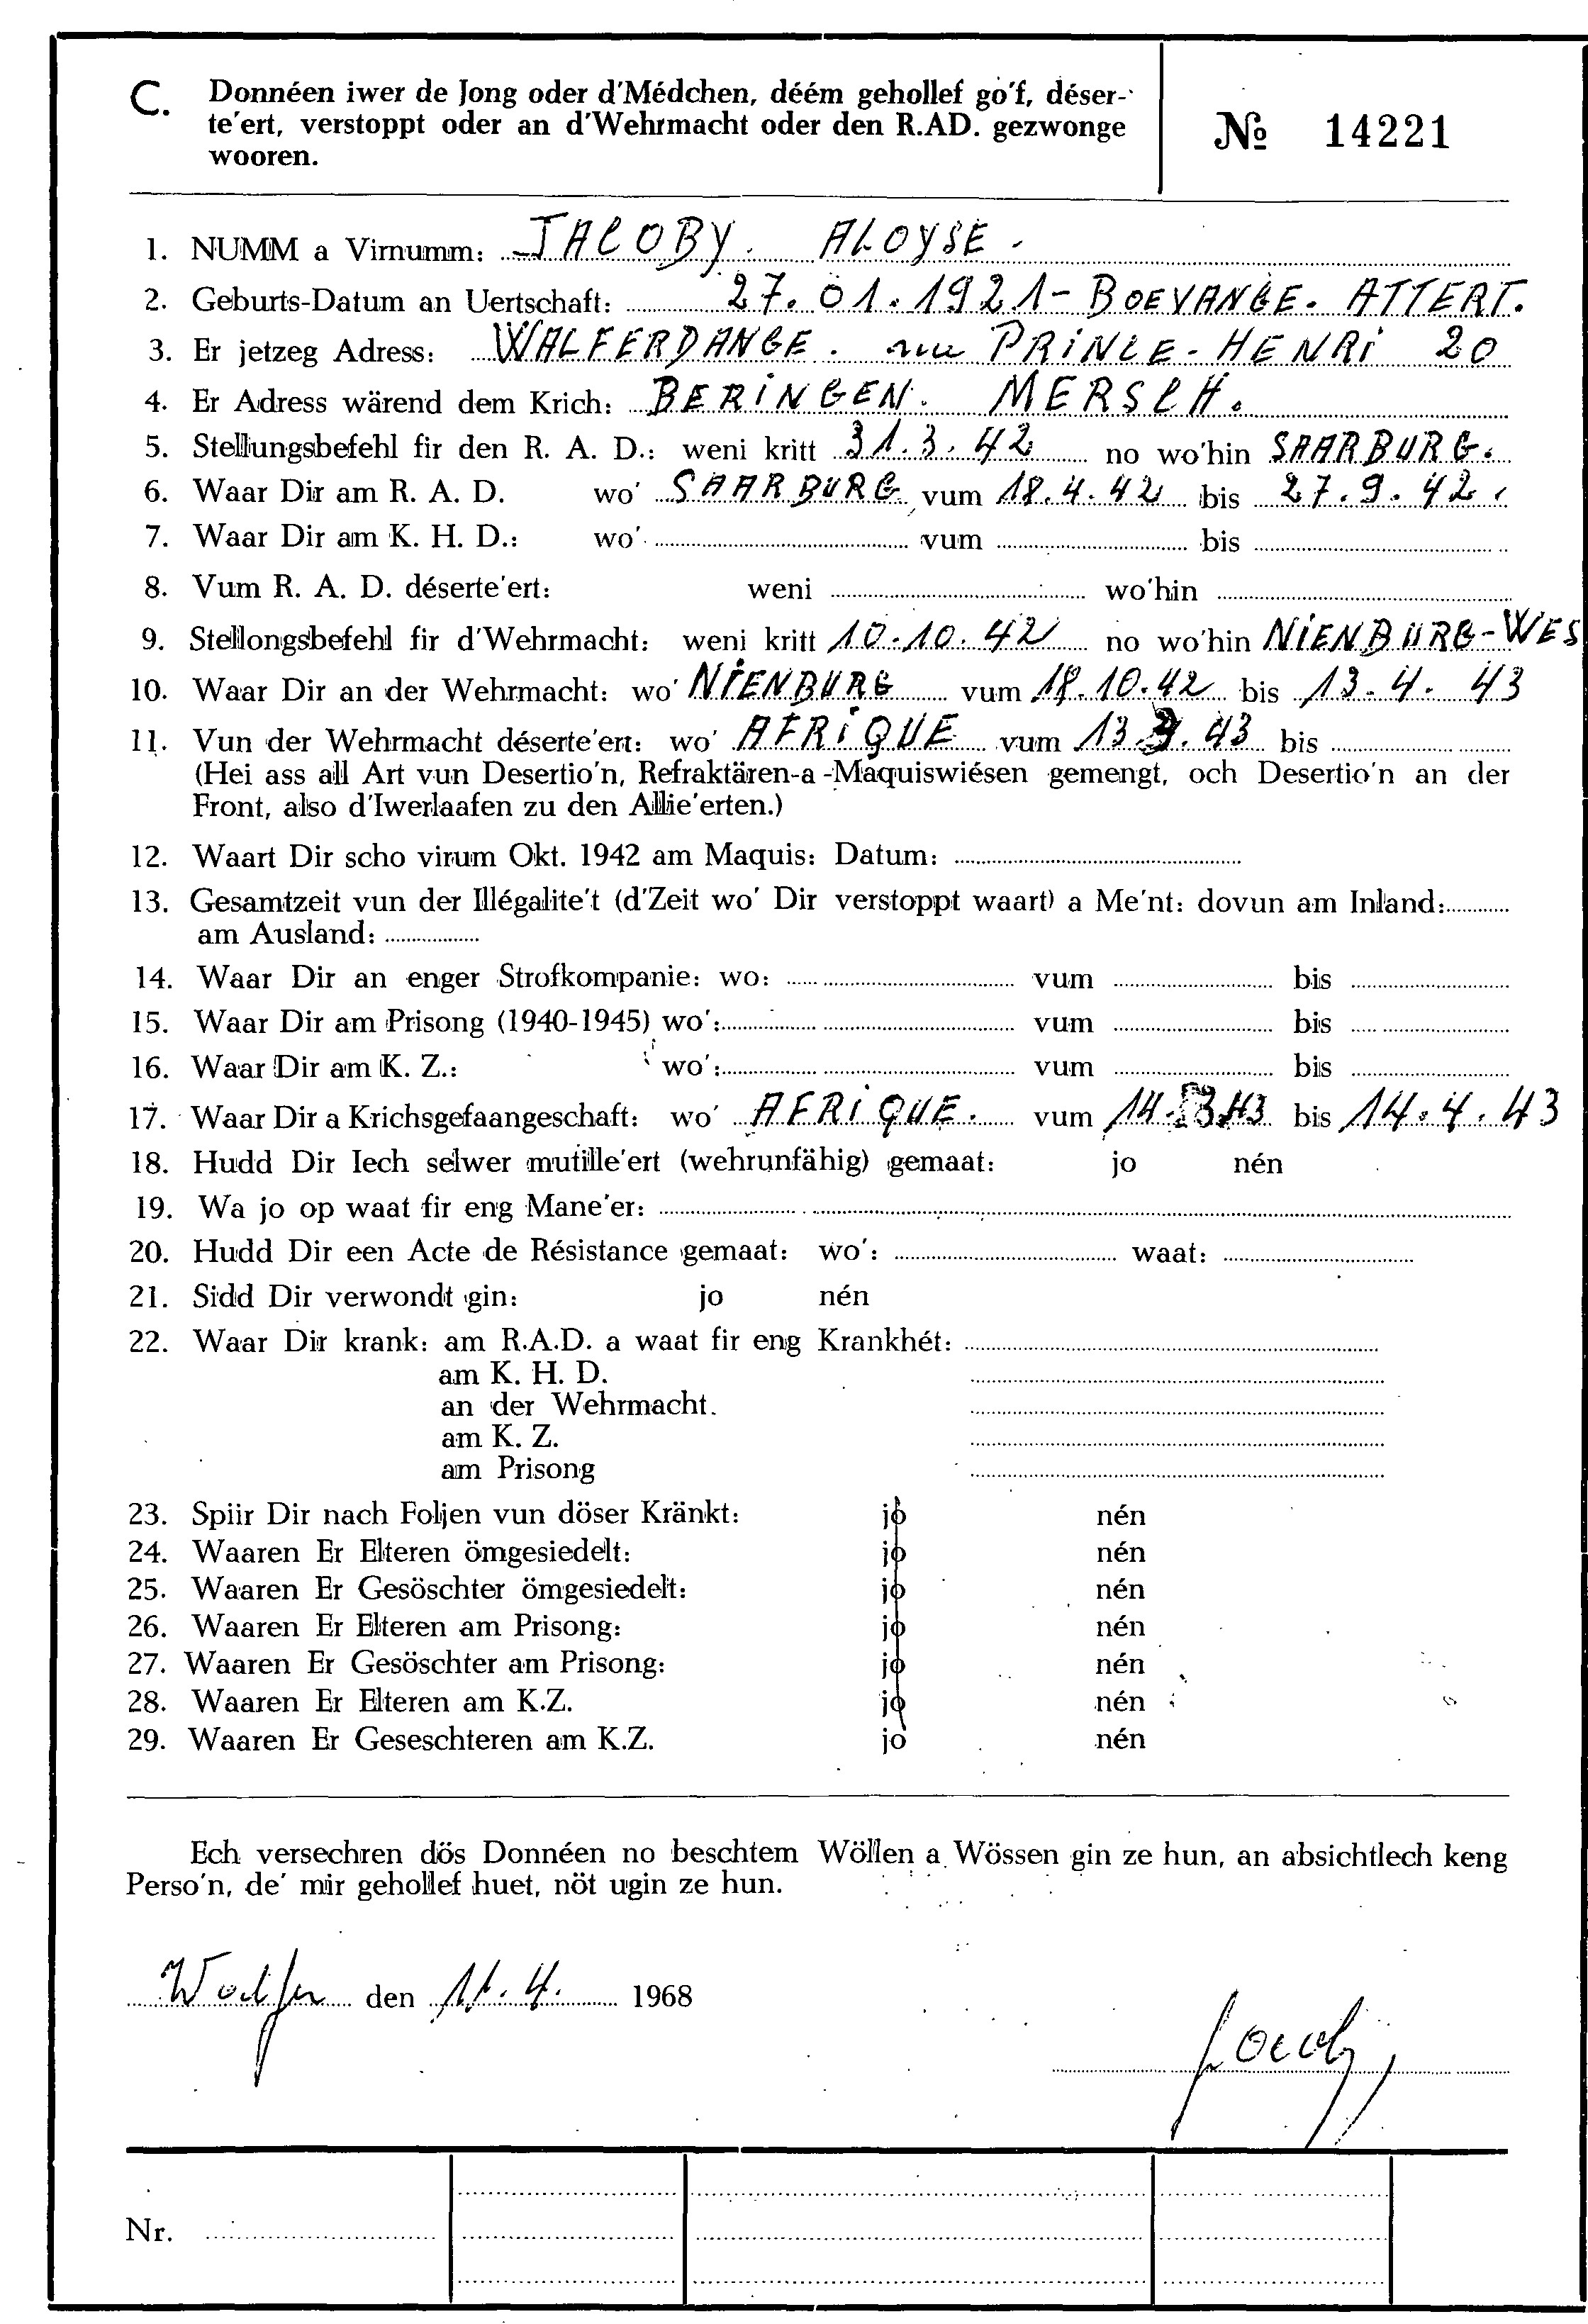 C. Donnéen iwer de Jong oder d'Médchen, déém gehollef go'f, déser-
te'ert, verstoppt oder an d'Wehrmacht oder den R.AD. gezwonge
wooren.
№ 14221
1. NUMM a Virnumm: JACOBY. ALOYSE.
2. Geburts-Datum an Uertschaft: 27.01.1921 - BOEVANGE. ATTERT.
3. Er jetzeg Adress: WALFERDANGE. rue PRINCE-HENRI 20
4. Er Adress wärend dem Krich: BERINGEN. MERSCH.
5. Stellungsbefehl fir den R. A. D.: weni kritt 31.3.42 no wo'hin SAARBURG.
6. Waar Dir am R. A. D. wo' SAARBURG vum 18.4.42 bis 27.9.42.
7. Waar Dir am K. H. D.: wo' vum bis
8. Vum R. A. D. déserte'ert: weni wo'hin
9. Stellongsbefehl fir d'Wehrmacht: weni kritt 10.10.42 no wo'hin NIENBURG-WES
10. Waar Dir an der Wehrmacht: wo' NIENBURG vum 18.10.42 bis 13.4.43
11. Vun der Wehrmacht déserte'ert: wo' AFRIQUE vum 13. .43 bis
(Hei ass all Art vun Desertio'n, Refraktären-a-Maquiswiésen gemengt, och Desertio'n an der
Front, also d'Iwerlaafen zu den Allie'erten.)
12. Waart Dir scho virum Okt. 1942 am Maquis: Datum:
13. Gesamtzeit vun der Illégalite't (d'Zeit wo' Dir verstoppt waart) a Me'nt: dovun am Inland:
am Ausland:
14. Waar Dir an enger Strofkompanie: wo: vum bis
15. Waar Dir am Prisong (1940-1945) wo': vum bis
16. Waar Dir am K. Z.: wo': vum bis
17. Waar Dir a Krichsgefaangeschaft: wo' AFRIQUE. vum 14. 3.43 bis 14.4.43
18. Hudd Dir Iech selwer mutille'ert (wehrunfähig) gemaat: jo nén
19. Wa jo op waat fir eng Mane'er:
20. Hudd Dir een Acte de Résistance gemaat: wo': waat:
21. Sidd Dir verwondt gin: jo nén
22. Waar Dir krank: am R.A.D. a waat fir eng Krankhét:
am K. H. D.
an der Wehrmacht.
am K. Z.
am Prisong
23. Spiir Dir nach Foljen vun döser Kränkt: jo nén
24. Waaren Er Elteren ömgesiedelt: jo nén
25. Waaren Er Gesöschter ömgesiedelt: jo nén
26. Waaren Er Elteren am Prisong: jo nén
27. Waaren Er Gesöschter am Prisong: jo nén
28. Waaren Er Elteren am K.Z. jo nén
29. Waaren Er Geseschteren am K.Z. jo nén
Ech versechren dös Donnéen no beschtem Wöllen a Wössen gin ze hun, an absichtlech keng
Perso'n, de' mir gehollef huet, nöt ugin ze hun.
Walfer den 11.4. 1968
Jacoby
Nr.